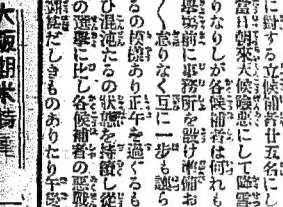 に對する立候補者廿五名にし
當日朝來天候險惡にして降雪
りなりしが各候補者は何れも
擧場前に事務所を設け準備お
く怠りなく互に一歩も讓ら
るの模樣あり正午を過ぐるも
ひ混沌たるの狀態を持續し從
の選擧に比し各候補者の惡戰
鬪甚だしきものありたり午後
大阪期米時